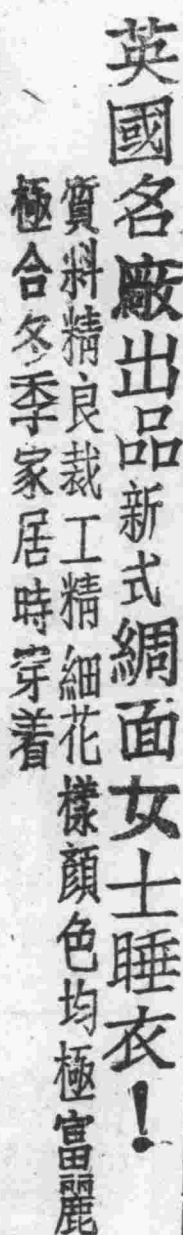 英國名廠出品新式綢面女士睡衣！
質料精良裁工精細花樣顏色均極富麗
極合冬季家居時穿着